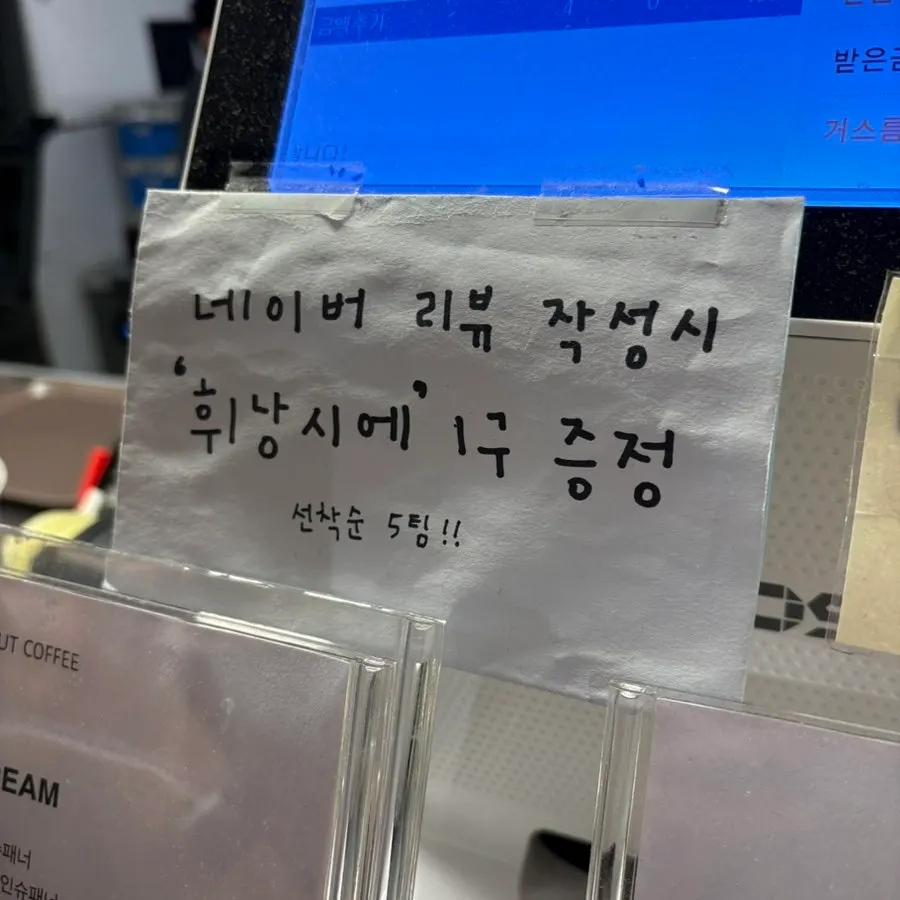 금액추가
받은금
거스름
네이버 리뷰 작성시
'휘낭시에' 1구 증정
선착순 5팀!!
UT COFFEE
REAM
슈패너
인슈패너